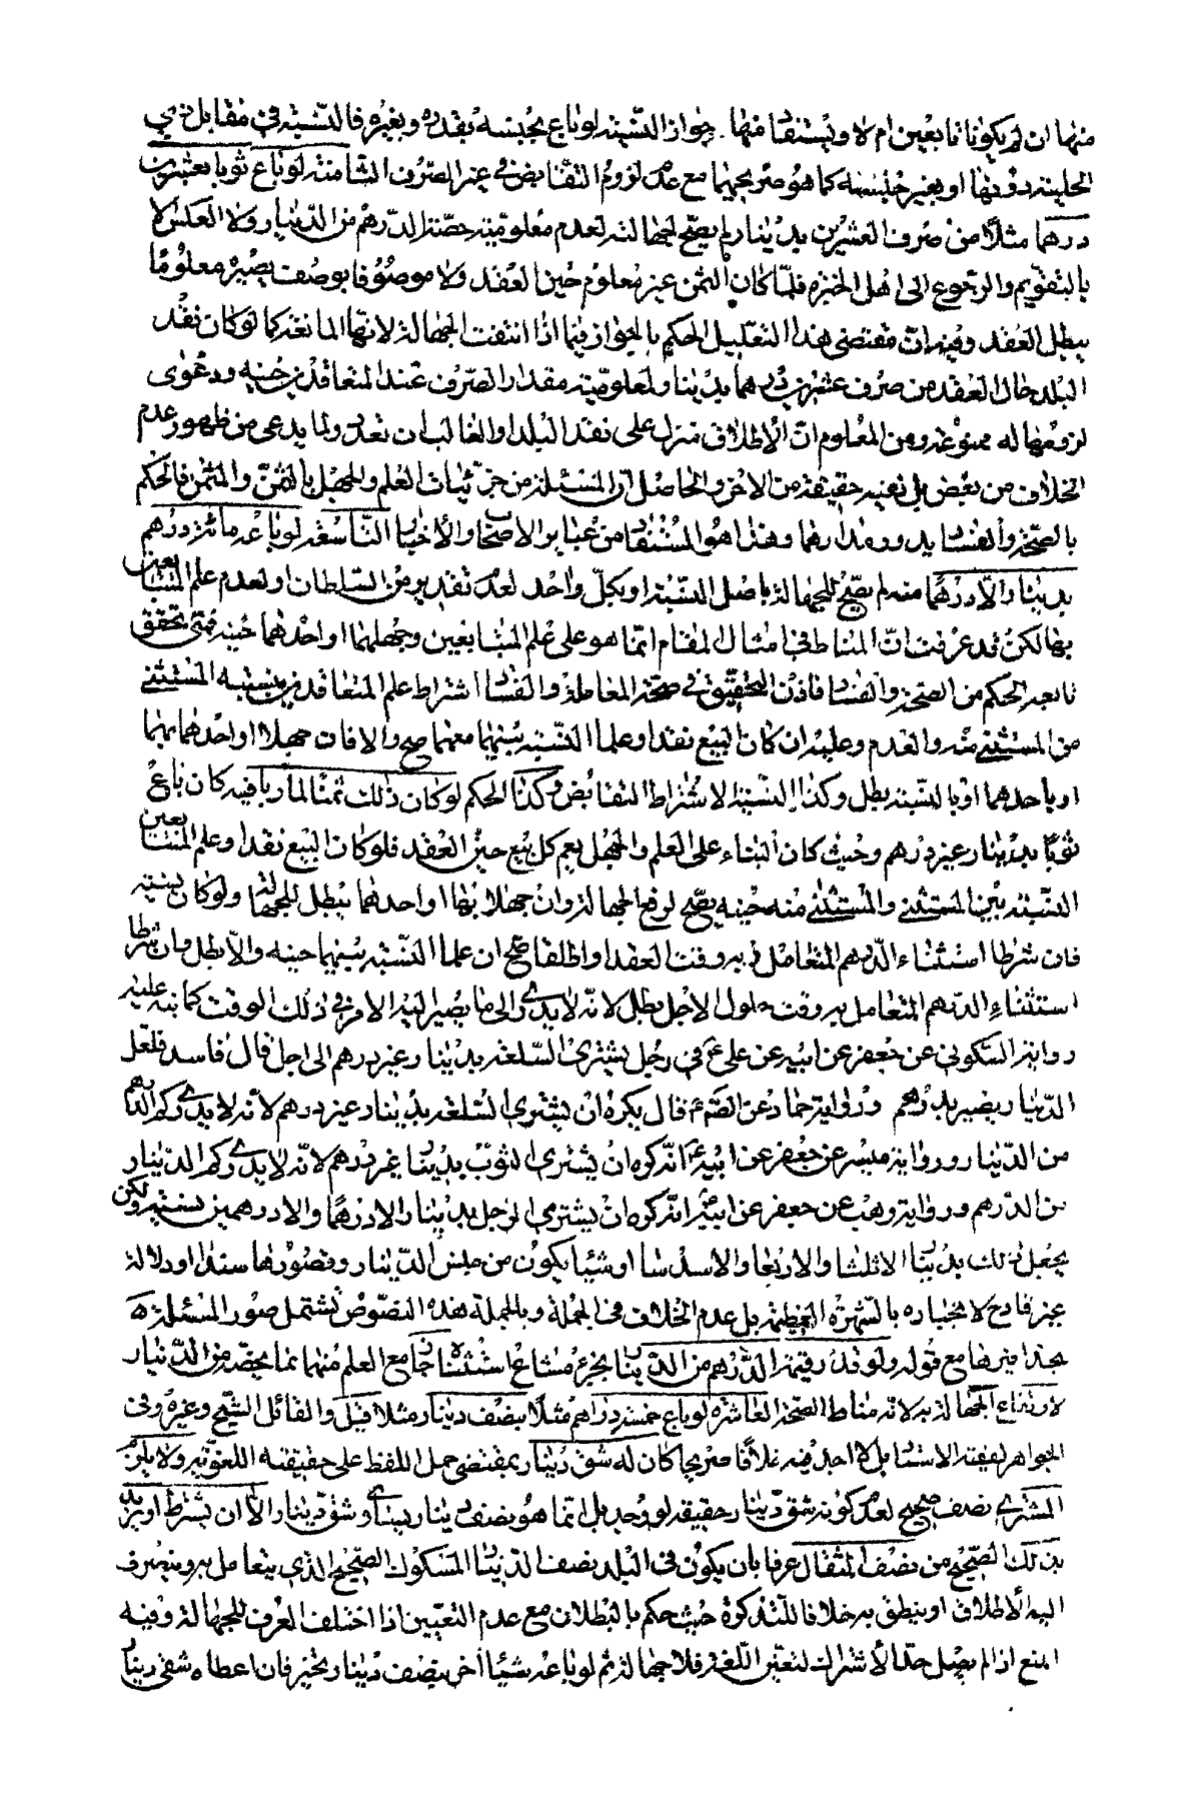 منهما ان لم يكونا تابعين ام لا ويستفاد منهما جواز النسيئة لو باع بجنسه بقدره وبغيره فالنسيئة في مقابل ذي
الحلية دونها او بغير جنسه كما هو صريحهما مع عدم لزوم التقابض في غير الصرف الثامنة لو باع ثوبا بعشرين
درهما مثلا من صرف العشرين بدينار لم يصح لجهالته لعدم معلومية حصة الدرهم من الدينار ولا العكس لا
بالتقويم والرجوع الى اهل الخبرة فلما كان الثمن غير معلوم حين العقد ولا موصوفا بوصف يصير معلوما
يبطل العقد وفيه ان مقتضى هذا التعليل الحكم بالجواز فيما اذا انتفت الجهالة لانها المانعة كما لو كان نقد
البلد حال العقد من صرف عشرين درهما بدينار ولمعلومية مقدار الصرف عند المتعاقدين حينه ودعوى
لزومها له ممنوعة ومن المعلوم ان الاطلاق منزل على نقد البلد او الغالب ان تعدد ولما يدعى من ظهور عدم
الخلاف من بعض بل نفيه حقيقة من الاخر والحاصل ان المسئلة من جزئيات العلم والجهل بالثمن والمثمن فالحكم
بالصحة والفساد يدور مدارهما وهذا هو المستفاد من عبائر الاصحاب والاخبار التاسعة لو باعه مائة درهم
بدينار الا درهما منه لم يصح للجهالة باصل النسبة او بكل واحد لعدم تقدير من السلطان او لعدم علم المتبايعين
بها لكن قد عرفت ان المناط في امثال المقام انما هو على علم المتبايعين وجهلهما او احدهما حينه فمتى تحقق
تابعه الحكم من الصحة والفساد فاذن التحقيق في صحة المعاملة والفساد اشتراط علم المتعاقدين بنسبة المستثنى
من المستثنى منه والعدم وعليه ان كان البيع نقدا وعلما النسبة بينهما معهما صح والا فان جهلا او احدهما بهما
او باحدهما او بالنسبة بطل وكذا النسيئة لاشتراط التقابض وكذا الحكم لو كان ذلك ثمنا لما لا ربا فيه كان باع
ثوبا بدينار غير درهم وحيث كان البناء على العلم والجهل يعم كل بيع حين العقد فلو كان البيع نقدا وعلم المتبايعين
النسبة بين المستثنى والمستثنى منه حينه يصح لرفع الجهالة وان جهلا بها او احدهما يبطل للجهالة ولو كان نسيئة
فان شرطا استثناء الدرهم المتعامل به وقت العقد او اطلقا صح ان علما النسبة بينهما حينه والا بطل وان شرطا
استثناء الدرهم المتعامل به وقت حلول الاجل بطل لانه لا يدري الى ما يصير اليه الامر في ذلك الوقت كما نبه عليه
رواية السكوني عن جعفر عن ابيه عن علي ع في رجل يشتري السلعة بدينار غير درهم الى اجل قال فاسد فلعل
الدينار يصير بدرهم ورواية حماد عن الصم ع قال يكره ان يشتري السلعة بدينار غير درهم لانه لا يدري كم الدرهم
من الدينار ورواية ميسر عن جعفر عن ابيه ع انه كره ان يشتري الثوب بدينار غير درهم لانه لا يدري كم الدينار
من الدرهم ورواية وهب عن جعفر عن ابيه ع انه كره ان يشتري الرجل بدينار الا درهما والا درهمين نسيئة ولكن
يجعل ذلك بدينار الا ثلثا والا ربعا والا سدسا او شيئا يكون من جنس الدينار وقصورها سندا او دلالة
غير قادح لانجباره بالشهرة العظيمة بل عدم الخلاف في الجملة وبالجملة هذه النصوص تشتمل صور المسئلة
بحذافيرها مع قوله ولو قدر قيمة الدرهم من الدينار بجزء مشاع استثناه جاز مع العلم منهما بما يخصه من الدينار
لارتفاع الجهالة به لانه مناط الصحة العاشرة لو باع خمسة دراهم مثلا بنصف دينار مثلا قيل والقائل الشيخ وغيره وفي
الجواهر نفيته الاستاد بل لا اجد فيه خلافا صريحا كان له شق دينار بمقتضى حمل اللفظ على حقيقته اللغوية ولا يلزم
المشتري نصف صحيح لعدم كونه شق دينار حقيقة لو وجد بل انما هو نصف دينار يساوي شق دينار الا ان يشترط او يريد
بذلك الصحيح من نصف المثقال عرفا بان يكون في البلد نصف الدينار المسكوك الصحيح الذي يتعامل به وينصرف
اليه الاطلاق او ينطق به خلافا للتذكرة حيث حكم بالبطلان مع عدم التعيين اذا اختلف العرف للجهالة وفيه
المنع اذا لم يصل حد الاشتراك لتعين اللغة فلا جهالة ثم لو باعه شيئا اخر بنصف دينار بخير فان اعطاه شقي دينار